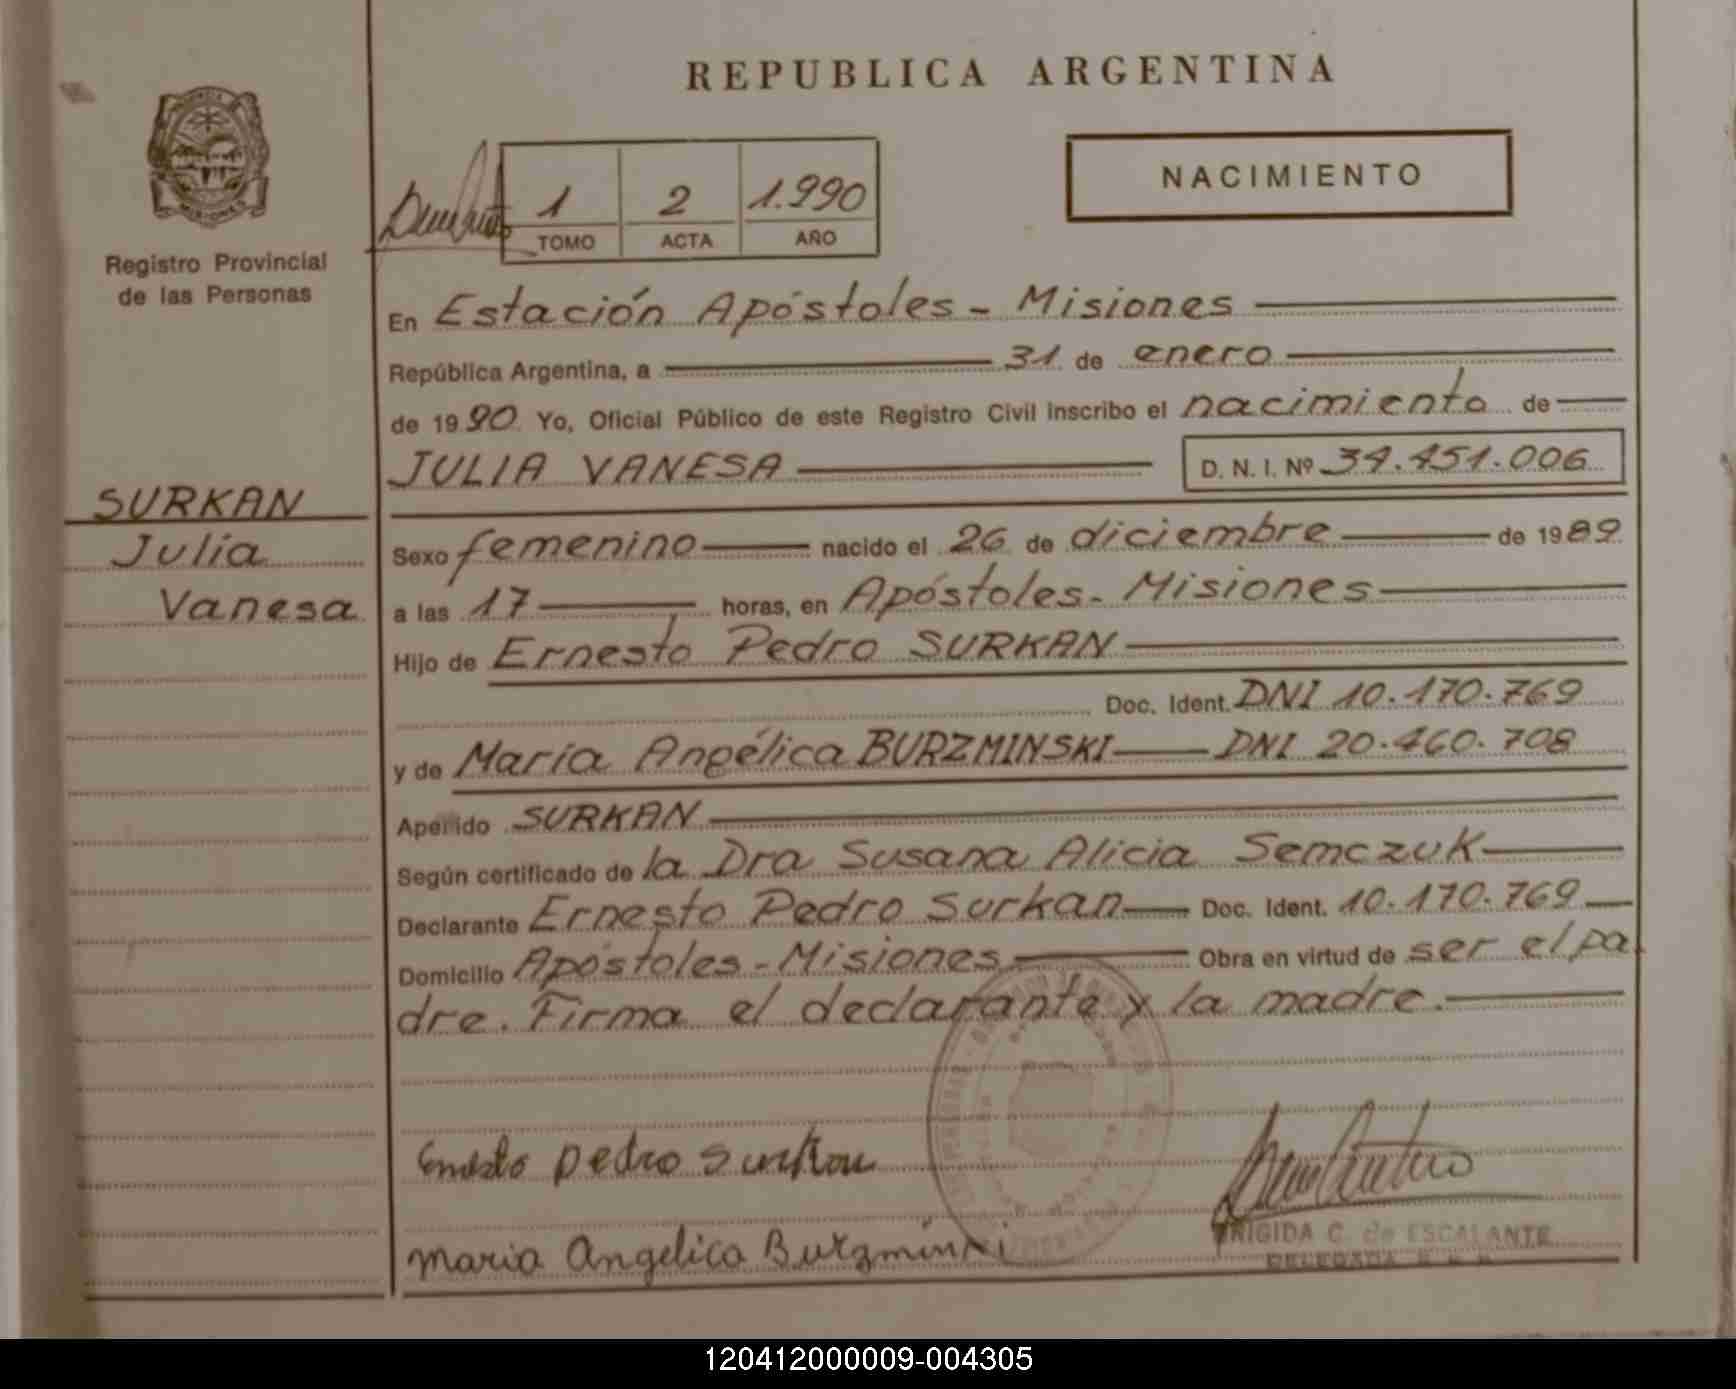 REPUBLICA ARGENTINA
MISIONES
Registro Provincial
de las Personas
1 2 1.990
TOMO ACTA AÑO
NACIMIENTO
En Estación Apóstoles - Misiones
República Argentina, a 31 de enero
de 1990 Yo, Oficial Público de este Registro Civil inscribo el nacimiento de
JULIA VANESA D. N. I. Nº 34.451.006
SURKAN
Julia
Vanesa
Sexo femenino nacido el 26 de diciembre de 1989
a las 17 horas, en Apóstoles - Misiones
Hijo de Ernesto Pedro SURKAN
Doc. Ident. DNI 10.170.769
y de María Angélica BURZMINSKI DNI 20.460.708
Apellido SURKAN
Según certificado de la Dra Susana Alicia Semczuk
Declarante Ernesto Pedro Surkan Doc. Ident. 10.170.769
Domicilio Apóstoles - Misiones Obra en virtud de ser el pa
dre. Firma el declarante y la madre.
Ernesto Pedro Surkan
Maria Angelica Burzminki
BRIGIDA C. de ESCALANTE
DELEGADA
120412000009-004305